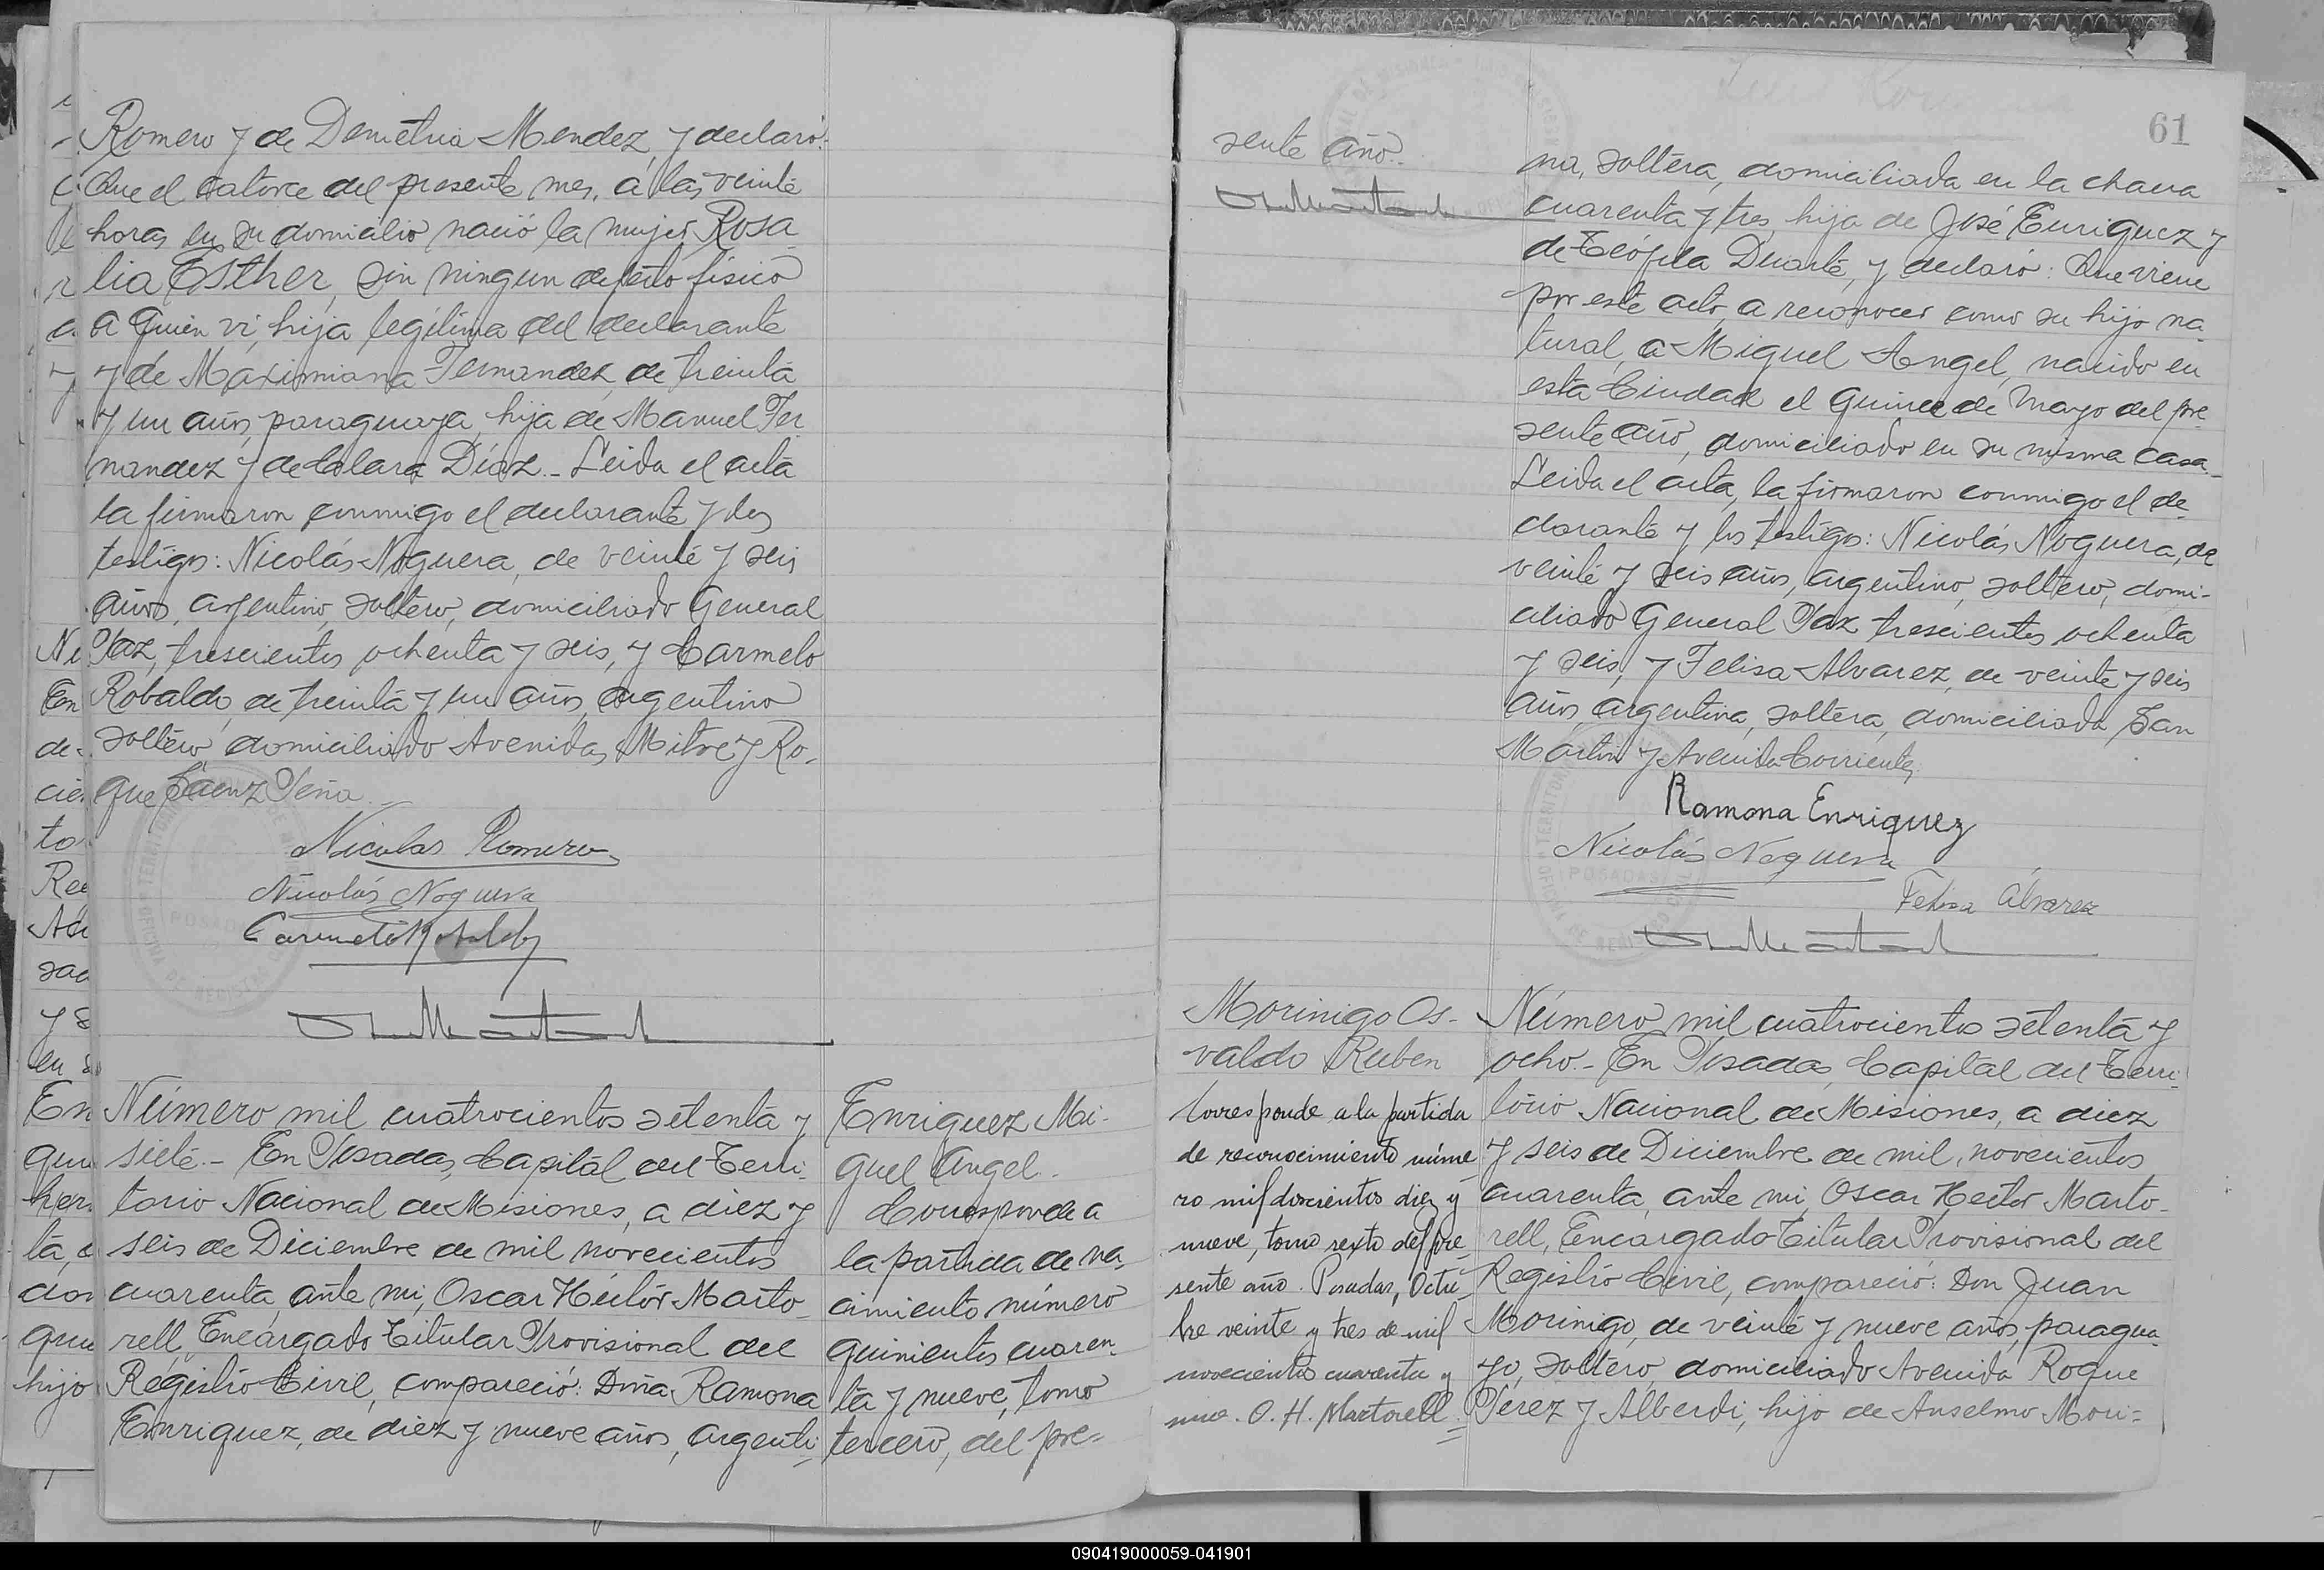 Romero y de Demetria Mendez, y declaró:
Que el catorce del presente mes, a las veinte
horas en su domicilio nació la mujer Rosa
lia Esther, sin ningun defecto físico
a quien vi, hija legítima del declarante
y de Maximiana Fernandez, de treinta
y un años, paraguaya, hija de Manuel Fer
nandez y de Clara Díaz.- Leida el acta
la firmaron conmigo el declarante y los
testigos: Nicolás Noguera, de veinte y seis
años, argentino, soltero, domiciliado General
Paz, trescientos ochenta y seis, y Carmelo
Robaldo, de treinta y un años, argentino
soltero, domiciliado Avenidas Mitre y Ro-
que Saenz Peña.-
Nicolas Romero
Nicolás Noguera
Carmelo Robaldo
Número mil cuatrocientos setenta y
siete.- En Posadas, Capital del Terri-
torio Nacional de Misiones, a diez y
seis de Diciembre de mil novecientos
cuarenta, ante mi, Oscar Héctor Marto-
rell, Encargado Titular Provisional del
Registro Civil, compareció: Doña Ramona
Enriquez, de diez y nueve años, argenti
Enriquez Mi-
guel Angel.-
Corresponde a
la partida de na-
cimiento número
quinientos cuaren-
ta y nueve, tomo
tercero, del pre-
61
sente año.-
na, soltera, domiciliada en la chacra
cuarenta y tres, hija de José Enriquez y
de Teófila Duarte, y declaró: Que viene
por este acto a reconocer como su hijo na
tural, a Miguel Angel, nacido en
esta Ciudad el quince de Mayo del pre
sente año, domiciliado en su misma casa.-
Leida el acta, la firmaron conmigo el de
clarante y los testigos: Nicolás Noguera, de
veinte y seis años, argentino, soltero, domi-
ciliado General Paz trescientos ochenta
y seis, y Felisa Alvarez, de veinte y seis
años, argentina, soltera, domiciliada San
Martin y Avenida Corrientes.
Ramona Enriquez
Nicolás Noguera
POSADAS
Felisa Álvarez
Morinigo Os-
valdo Ruben
Corresponde a la partida
de reconocimiento núme
ro mil doscientos diez y
nueve, tomo sexto del pre
sente año. Posadas, Octu
bre veinte y tres de mil
novecientos cuarenta y
uno. O. H. Martorell.
Número mil cuatrocientos setenta y
ocho.- En Posadas, Capital del Terri
torio Nacional de Misiones, a diez
y seis de Diciembre de mil novecientos
cuarenta, ante mi, Oscar Héctor Marto-
rell, Encargado Titular Provisional del
Registro Civil, compareció: Don Juan
Morinigo, de veinte y nueve años, paragua-
yo, soltero, domiciliado Avenida Roque
Perez y Alberdi, hijo de Anselmo Mori=
090419000059-041901